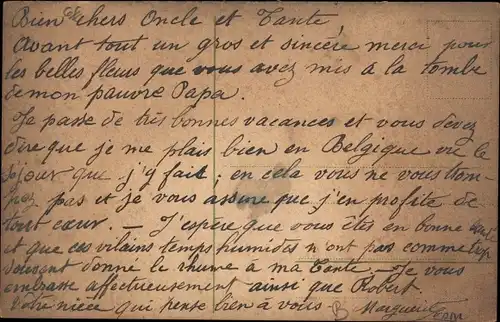 Bien chers Oncle et Tante
Avant tout un gros et sincère merci pour
les belles fleurs que vous avez mis à la tombe
de mon pauvre Papa.
Je passe de très bonnes vacances et vous devez
dire que je me plais bien en Belgique vu le
séjour que j'y fait ; en cela vous ne vous trom-
pez pas et je vous assure que j'en profite de
tout cœur. — J'espère que vous êtes en bonne santé
et que ces vilains temps humides n'ont pas comme
souvent donné le rhume à ma Tante. — Je vous
embrasse affectueusement ainsi que Robert.
Votre nièce qui pense bien à vous — Marguerite